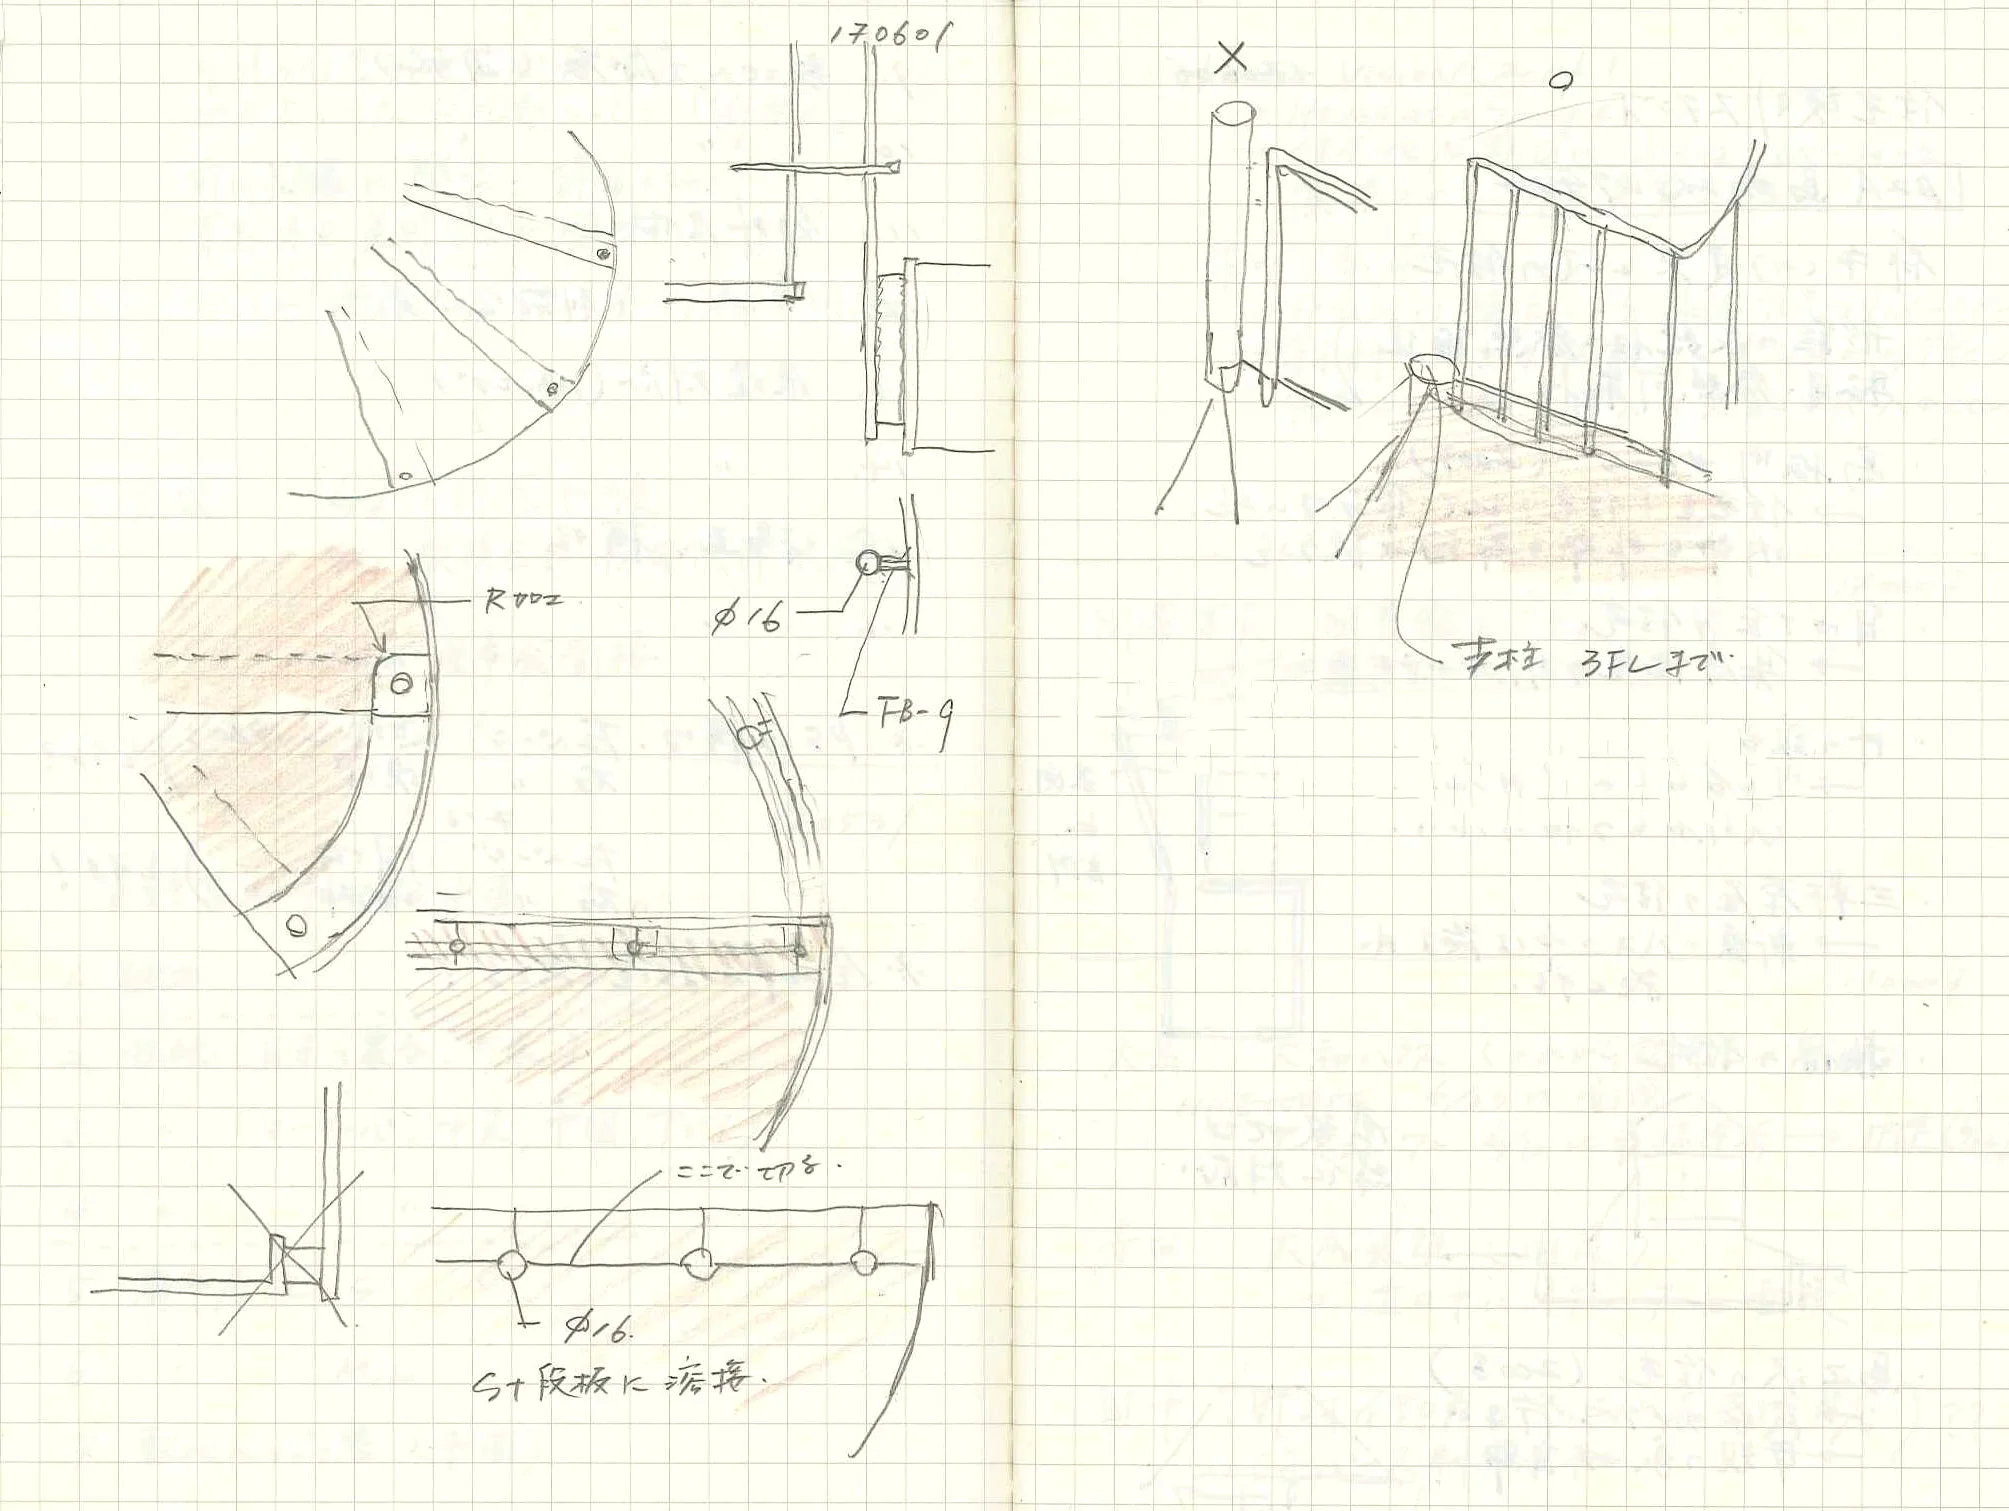 170601
×
○
R加工
φ16
FB-9
支柱 3FLまで
ここで切る.
φ16.
St段板に溶接.